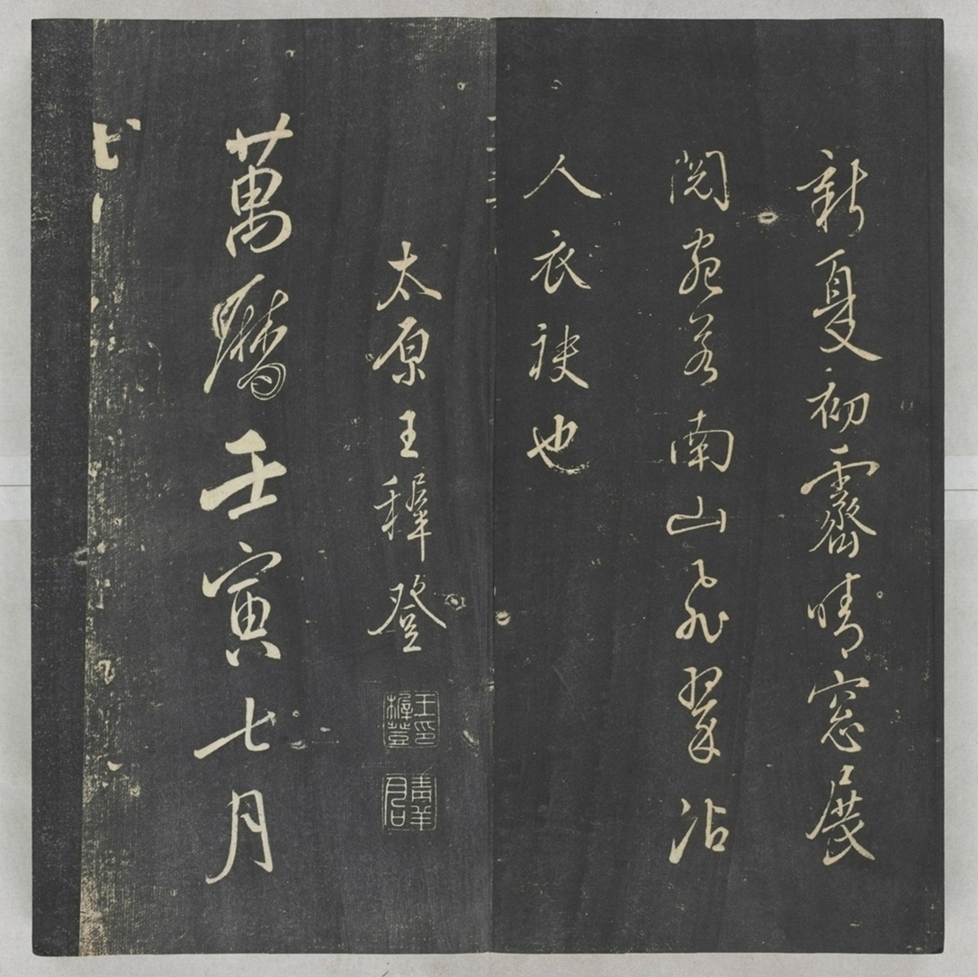 新夏初霽晴窓展
閱宛若南山飛翠沾
人衣袂也
太原王穉登
王穉登印
萬曆壬寅七月